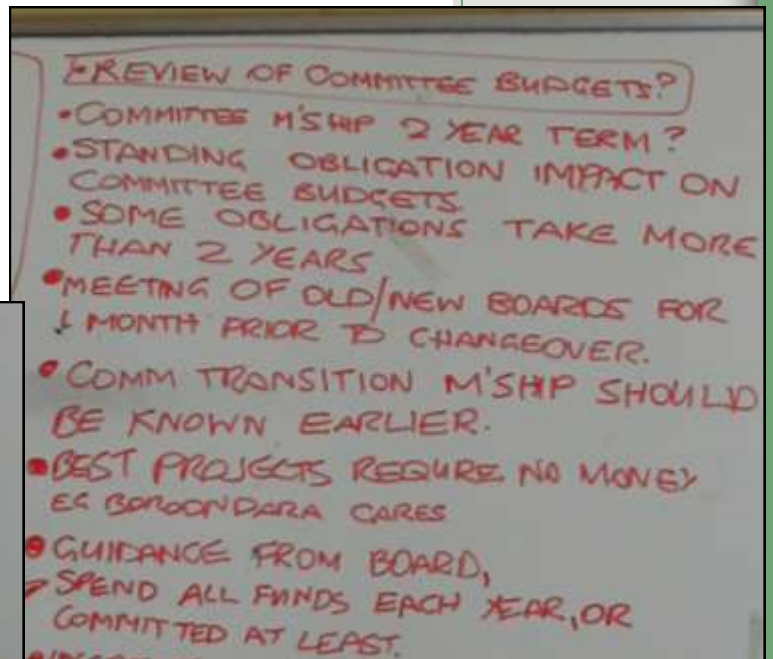 REVIEW OF COMMITTEE BUDGETS?
• COMMITTEE M'SHIP 2 YEAR TERM?
• STANDING OBLIGATION IMPACT ON
COMMITTEE BUDGETS
• SOME OBLIGATIONS TAKE MORE
THAN 2 YEARS
• MEETING OF OLD/NEW BOARDS FOR
1 MONTH PRIOR TO CHANGEOVER.
• COMM TRANSITION M'SHIP SHOULD
BE KNOWN EARLIER.
• BEST PROJECTS REQURE NO MONEY
EG BOROONDARA CARES
• GUIDANCE FROM BOARD,
SPEND ALL FUNDS EACH YEAR, OR
COMMITTED AT LEAST.